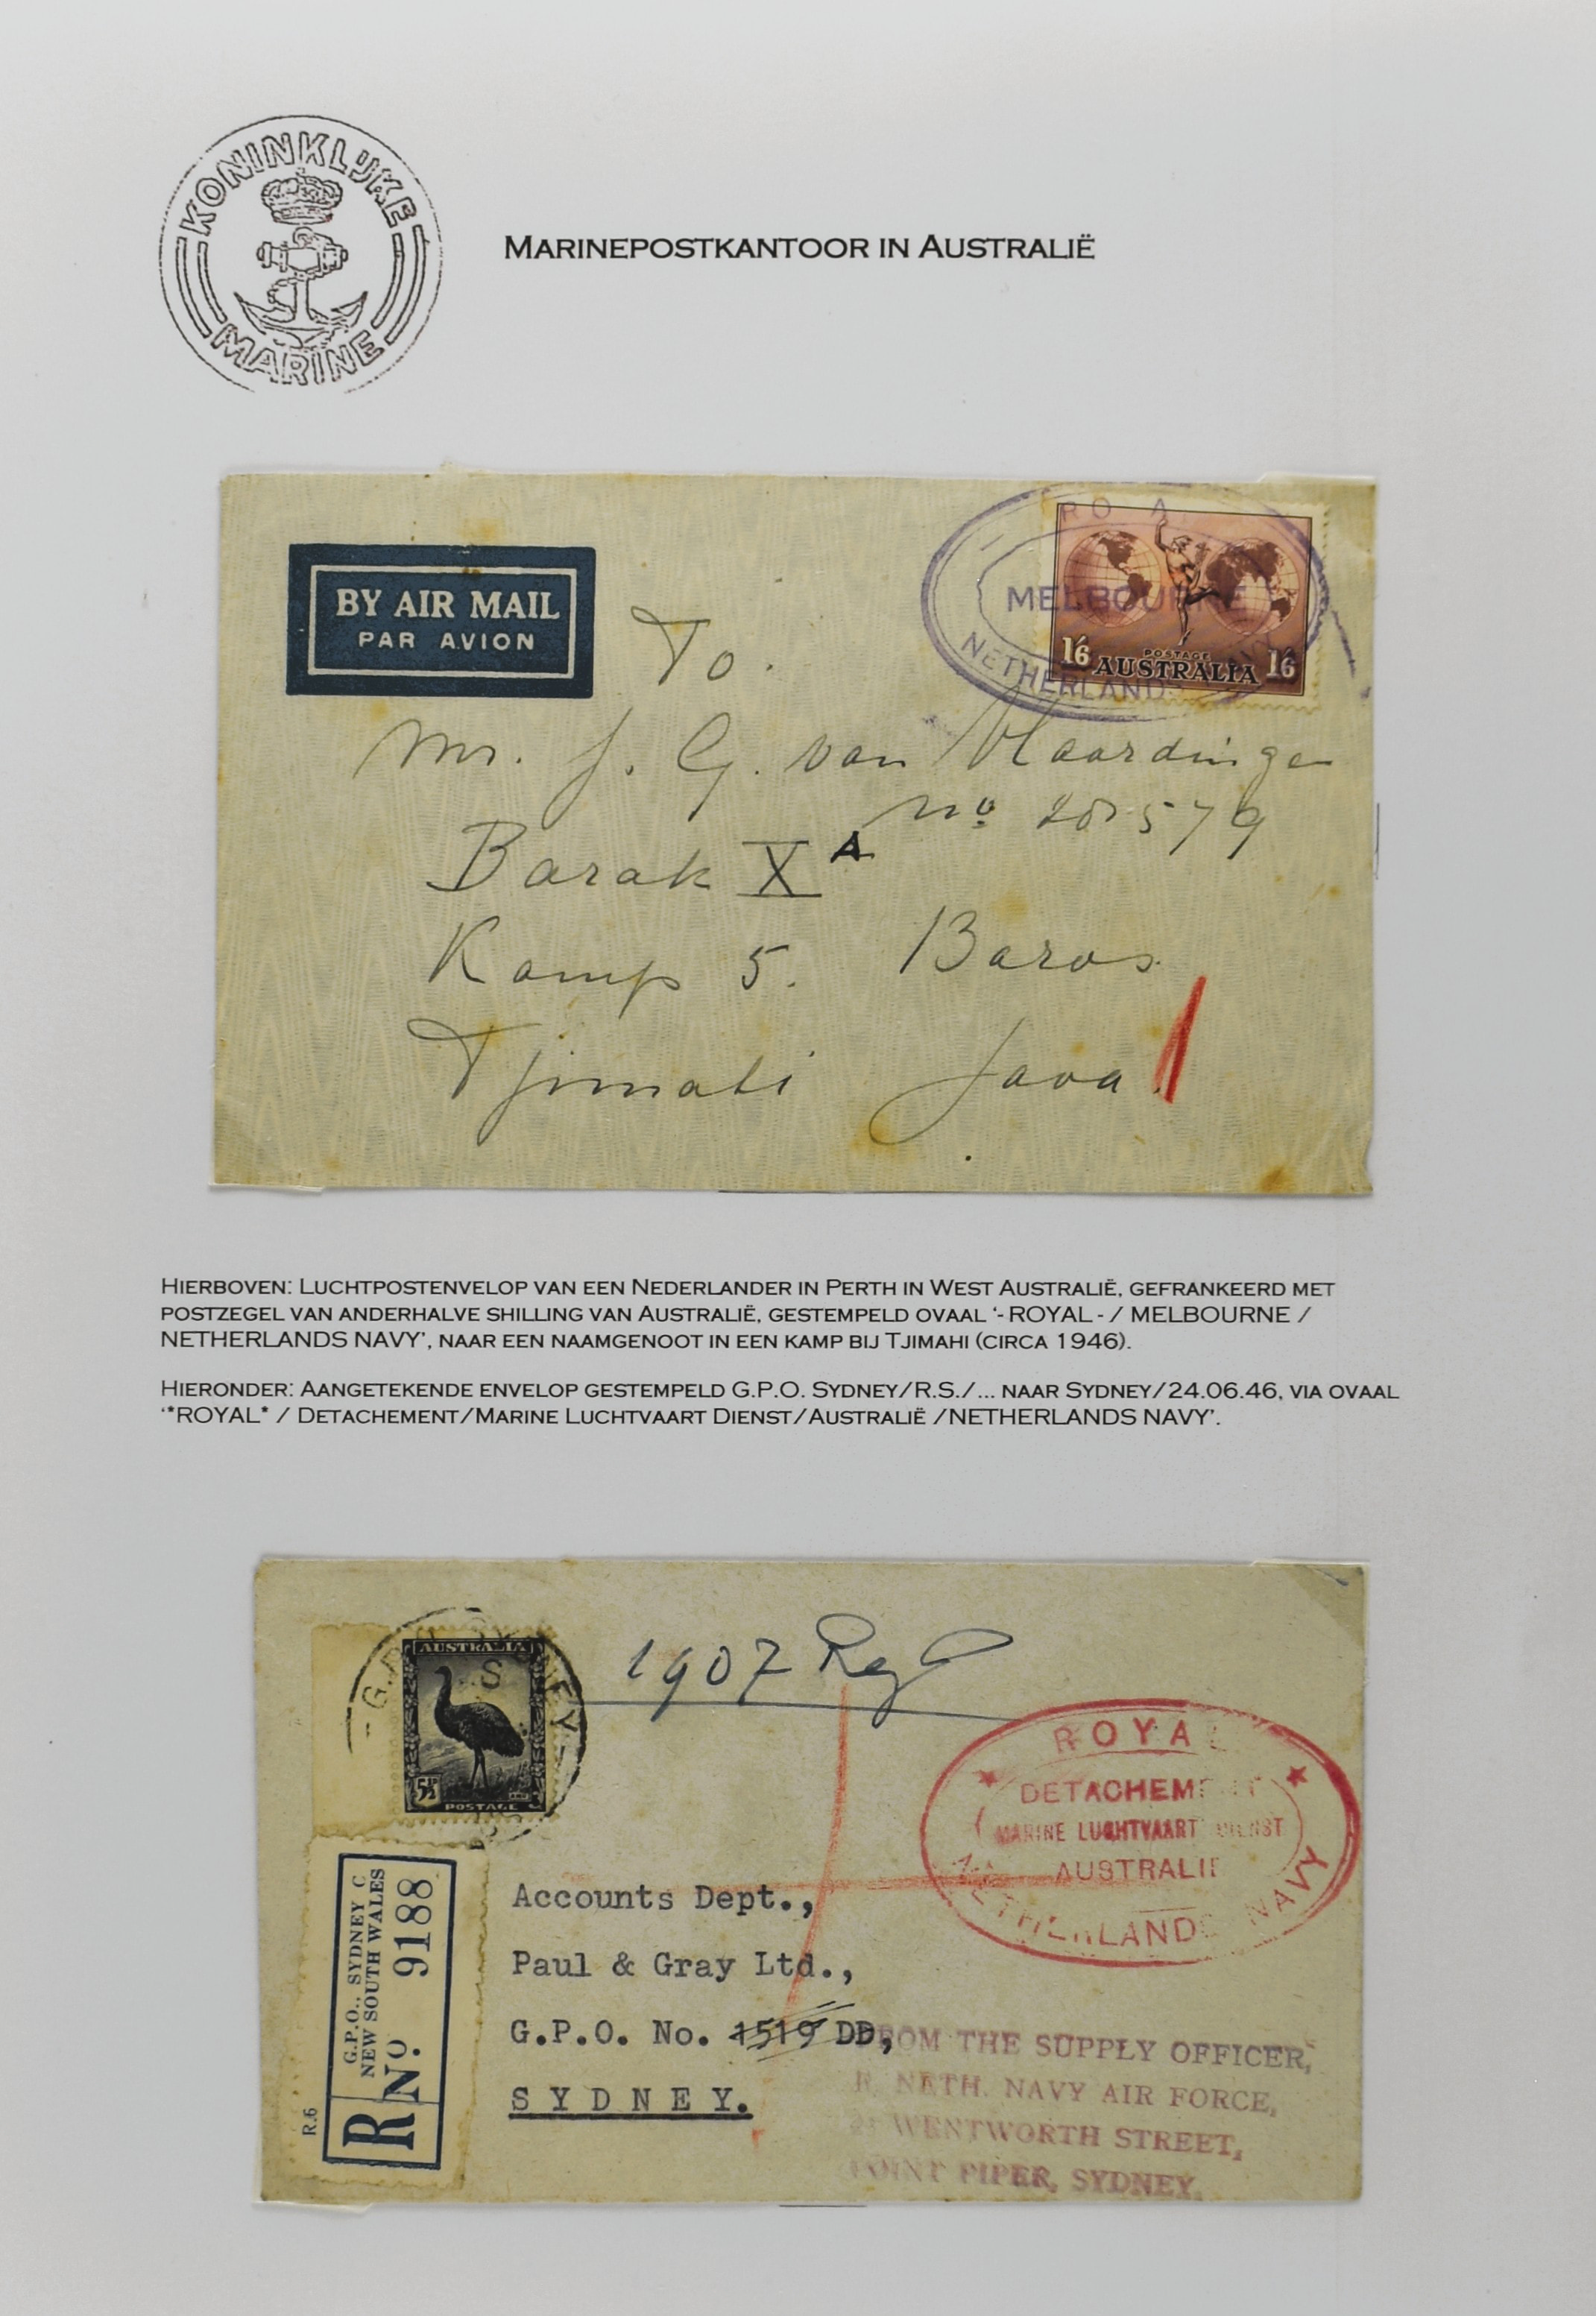 KONINKLIJKE
MARINE
MARINEPOSTKANTOOR IN AUSTRALIË
BY AIR MAIL
PAR AVION
RO A
MELBOURNE
NETHERLANDS
1/6 POSTAGE 1/6
AUSTRALIA
To.
Mr. J. G. van Vlaardingen
No. 20579
Barak X A
Kamp 5. Baros.
Tjimahi Java.
HIERBOVEN: LUCHTPOSTENVELOP VAN EEN NEDERLANDER IN PERTH IN WEST AUSTRALIË, GEFRANKEERD MET
POSTZEGEL VAN ANDERHALVE SHILLING VAN AUSTRALIË, GESTEMPELD OVAAL '-ROYAL - / MELBOURNE /
NETHERLANDS NAVY', NAAR EEN NAAMGENOOT IN EEN KAMP BIJ TJIMAHI (CIRCA 1946).
HIERONDER: AANGETEKENDE ENVELOP GESTEMPELD G.P.O. SYDNEY/R.S./... NAAR SYDNEY/24.06.46, VIA OVAAL
'*ROYAL* / DETACHEMENT/MARINE LUCHTVAART DIENST/AUSTRALIË /NETHERLANDS NAVY'.
AUSTRALIA
5½D
POSTAGE
1907 Reg
ROYAL
DETACHEMENT
MARINE LUCHTVAART DIENST
AUSTRALIE
NETHERLANDS NAVY
R.6
R No. 9188
G.P.O., SYDNEY C
NEW SOUTH WALES
Accounts Dept.,
Paul & Gray Ltd.,
G.P.O. No. 1519 DD,
SYDNEY.
FROM THE SUPPLY OFFICER,
R. NETH. NAVY AIR FORCE,
WENTWORTH STREET,
POINT PIPER, SYDNEY.